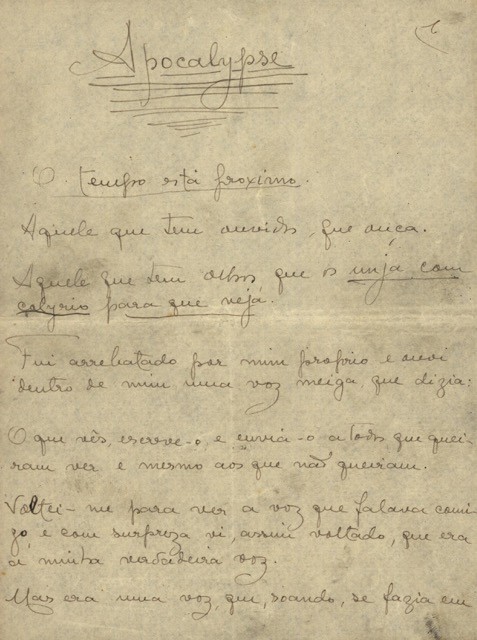 1
Apocalypse
O tempo está proximo.
Aquele que tem ouvidos, que ouça.
Aquele que tem olhos que os unjá com
colyrio para que vejá.
Fui arrebatado por mim proprio e ouvi
dentro de mim uma voz meiga, que dizia:
O que vês, escreve-o, e enviá-o a todos que quei-
ram ver e mesmo aos que não queiram.
Voltei-me para ver a voz que falava comi-
go e com surpreza vi, assim voltado, que era
a minha verdadeira voz.
Mas era uma voz, que, soando, se fazia em